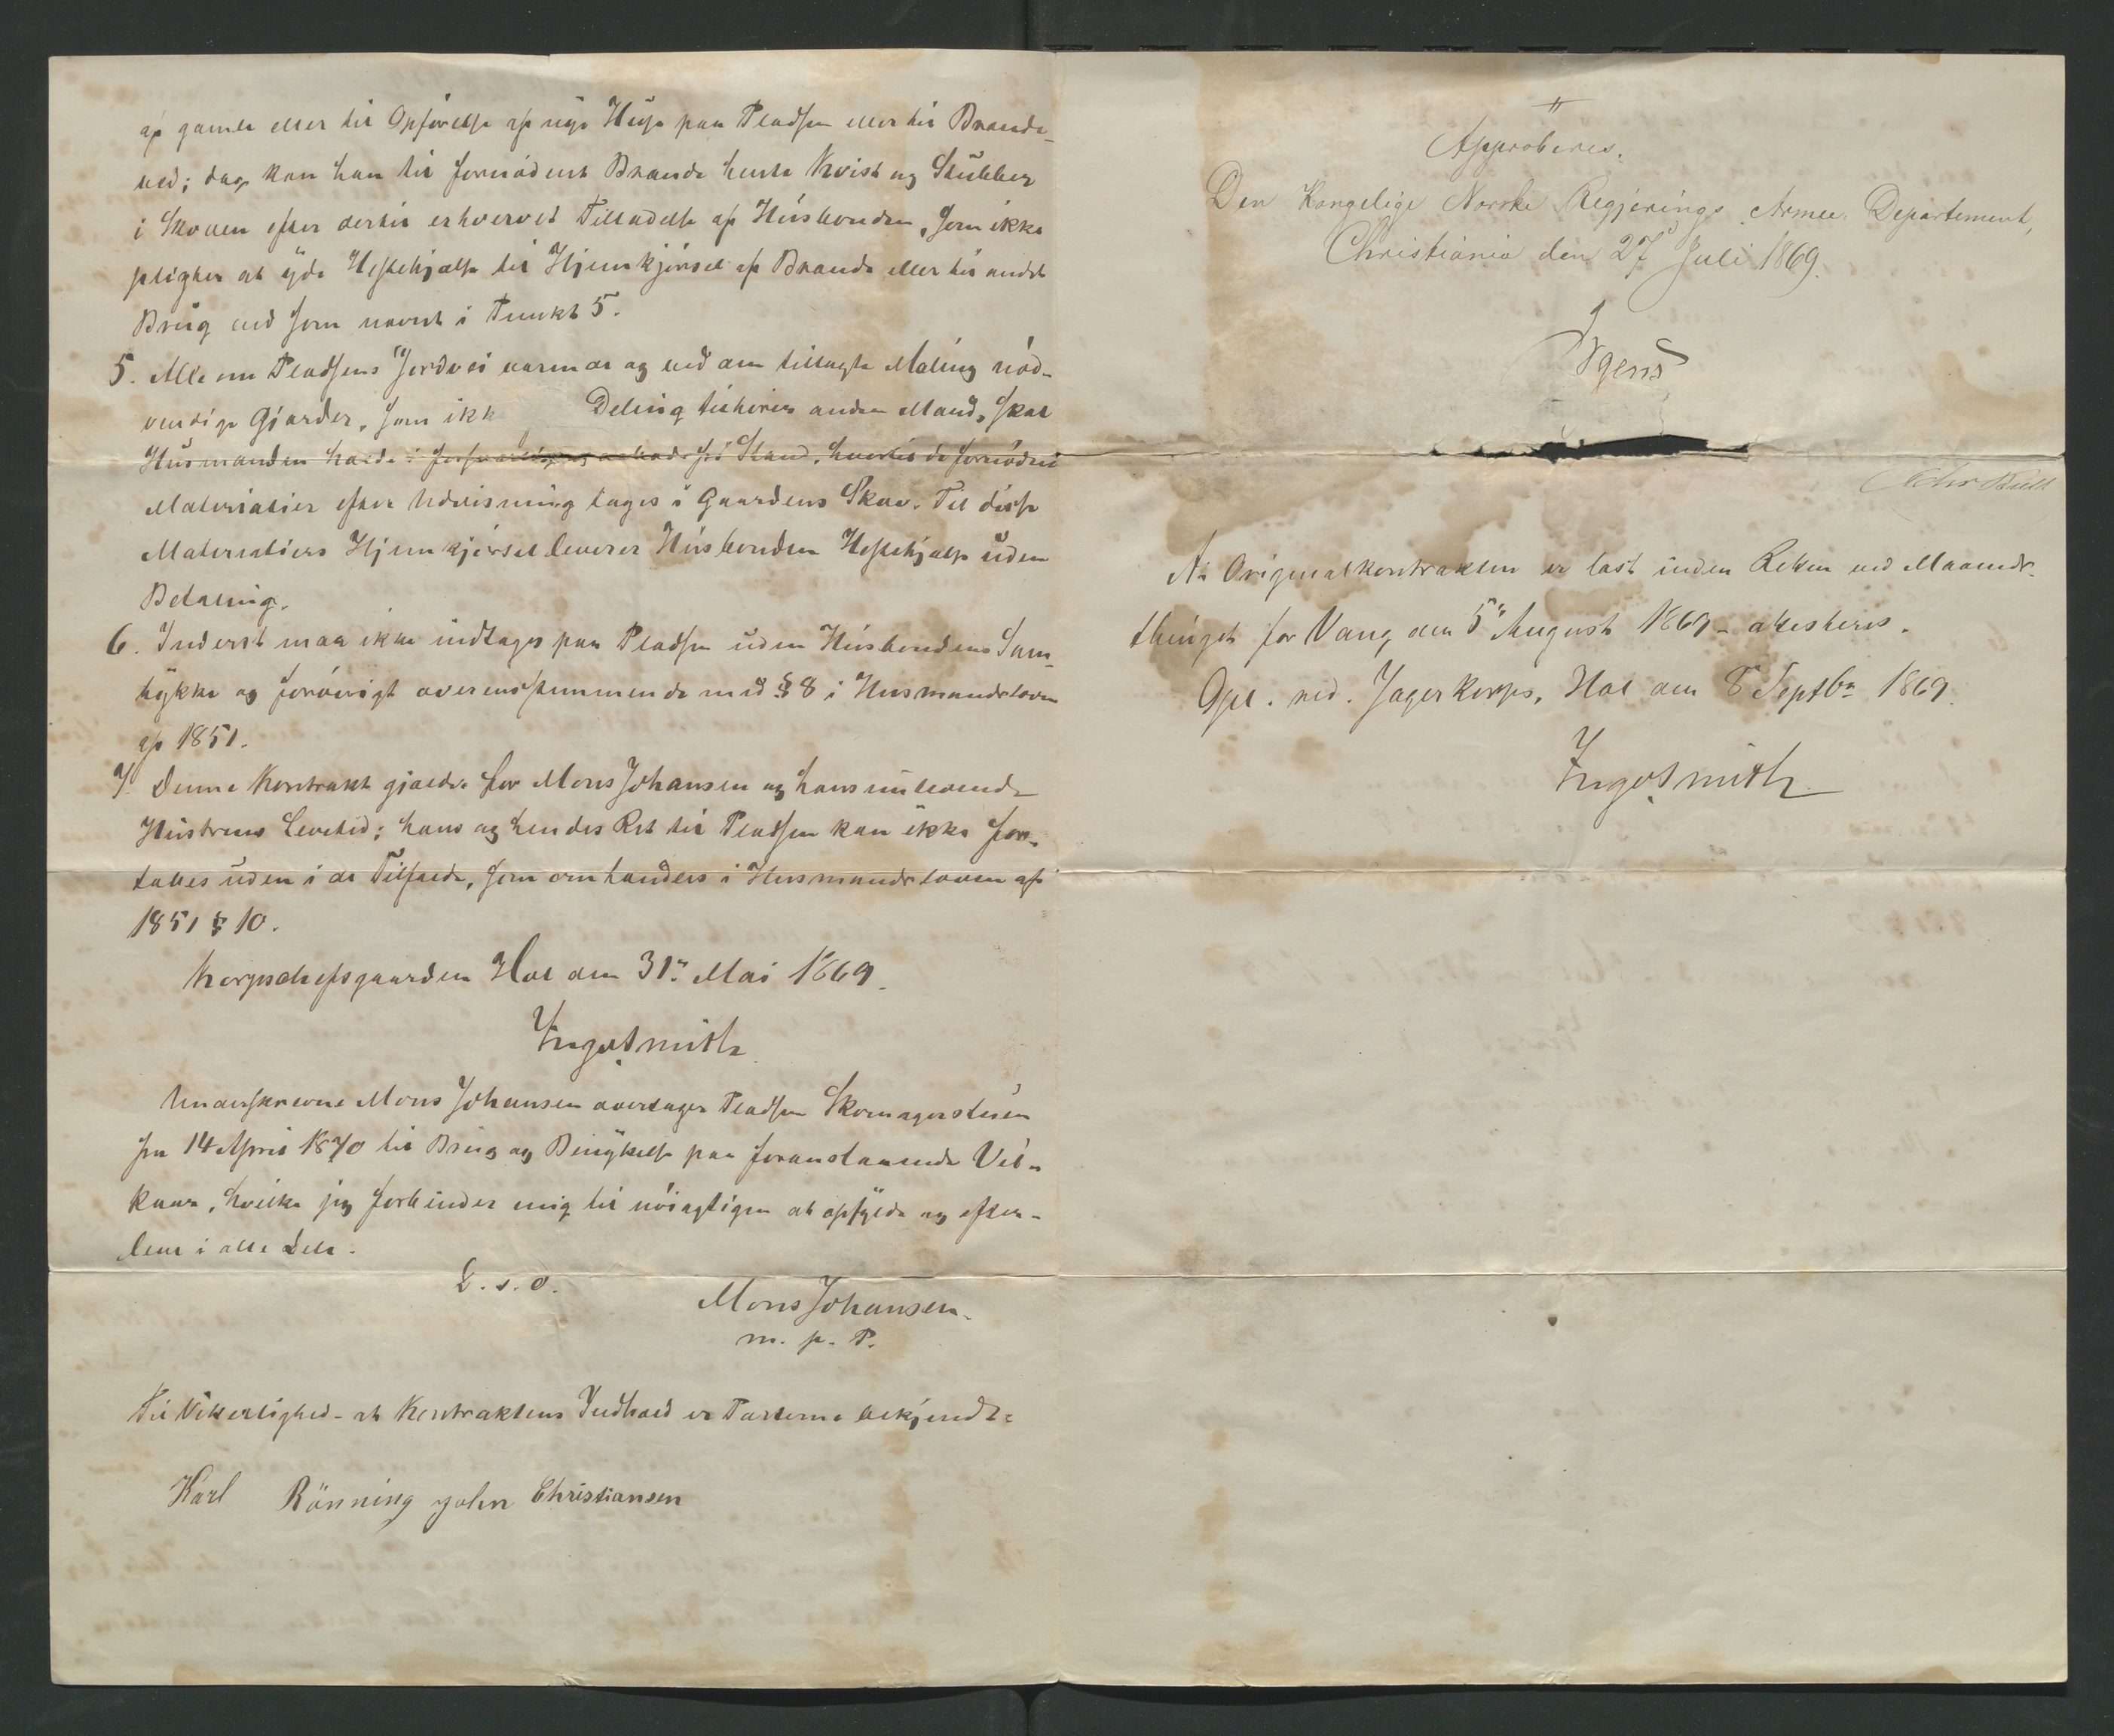 af gamle eller til Opførelse af nye Huse paa Pladsen eller til Brænde-
ved; dog kan han til fornødent Brænde hente Kvist og Stubber
i Skoven efter dertil erhvervet Tilladelse af Husbonden, som ikke
pligter at yde Hestehjælp til Hjemkjørsel af Brænde eller til andet
Brug end som nævnt i Punkt 5.
5. Alle om Pladsens Jordvei værende og ved den tillagte Maling nød-
vendige Gjærder, som ikk Deling tilhører anden Mand, skal
Husmanden holde i forsvarlig og Stand, hvortil de fornødne
Materialier efter Udvisning tages i Gaardens Skov. Til disse
Materialiers Hjemkjørsel leverer Husbonden Hestehjælp uden
Betaling.
6. Inderst maa ikke indtages paa Pladsen uden Husbondens Sam-
tykke og forøvrigt overensstemmende med § 8 i Husmandsloven
af 1851.
7. Denne Kontrakt gjælder for Mons Johansen og hans nulevende
Hustrues Levetid; hans og hendes Ret til Pladsen kan ikke for-
tabes uden i de Tilfælde, som omhandles i Husmandsloven af
1851 § 10.
Korpschefsgaarden Hol den 31te Mai 1869.
Ingolsmith
Underskrevne Mons Johansen overtager Pladsen Skomagerstuen
fra 14 April 1870 til Brug og Benyttelse paa foranstaaende Vil-
kaar, hvilke jeg forbinder mig til nøiagtigen at opfylde og efter-
leve i alle Dele.
D. s. o.
Mons Johansen.
m. p. P.
Til Vitterlighed – at Kontraktens Indhold er Parterne bekjendt –
Karl Rönning john Christiansen
Approberes.
Den Kongelige Norske Regjerings Armee Departement,
Christiania den 27 Juli 1869.
Irgens
At Originalkontrakten er læst inden Retten ved Maaneds-
thinget for Vang den 5te August 1869 – attesteres.
Opl. rid. Jægerkorps, Hol den 8 Septbr 1869.
Ingolsmith